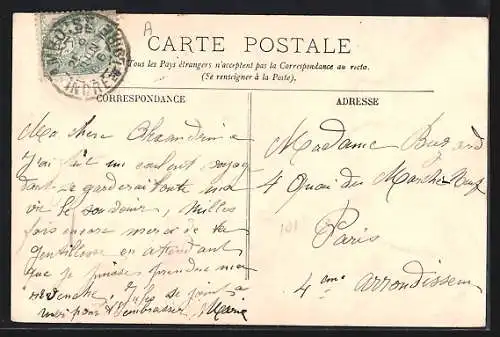 A
INDRE
CARTE POSTALE
Tous les Pays étrangers n'acceptent pas la Correspondance au recto.
(Se renseigner à la Poste).
CORRESPONDANCE
ADRESSE
Ma chere Alexandrine
J'ai fait un excellent voyage
dont je garderai toute ma
vie le souvenir, milles
fois encore merci de ta
gentillesse en attendant
que je puisse prendre ma
revanche, se joint a
moi pour t'embrasser, Marie
Madame
4 Quai du Marché Neuf
Paris
4eme arrondissem